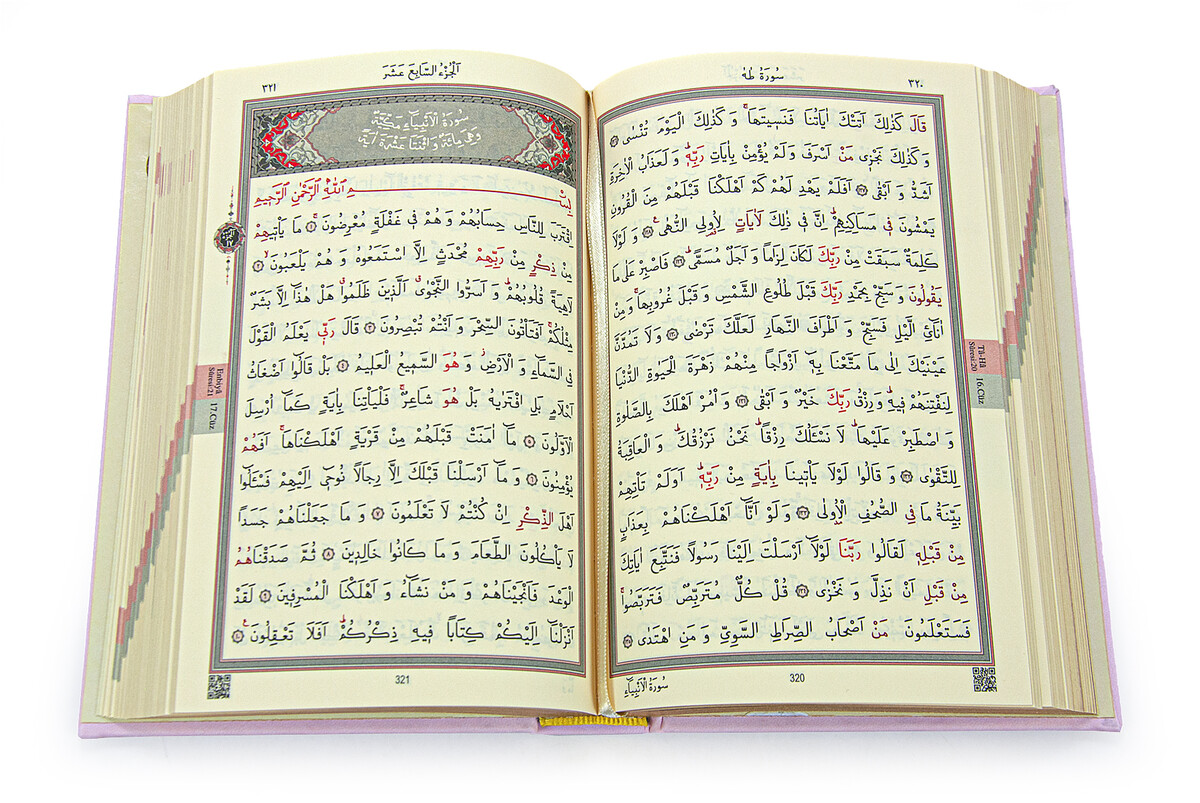 ٣٢٠
سُورَةُ طٰهٰ
قَالَ كَذٰلِكَ اَتَتْكَ اٰيَاتُنَا فَنَسِيتَهَاۚ وَكَذٰلِكَ الْيَوْمَ تُنْسٰى ﴿١٢٦﴾
وَكَذٰلِكَ نَجْزِى مَنْ اَسْرَفَ وَلَمْ يُؤْمِنْ بِاٰيَاتِ رَبِّهٖۜ وَلَعَذَابُ الْاٰخِرَةِ
اَشَدُّ وَاَبْقٰى ﴿١٢٧﴾ اَفَلَمْ يَهْدِ لَهُمْ كَمْ اَهْلَكْنَا قَبْلَهُمْ مِنَ الْقُرُونِ
يَمْشُونَ فٖى مَسَاكِنِهِمْۜ اِنَّ فٖى ذٰلِكَ لَاٰيَاتٍ لِاُولِى النُّهٰىۚ ﴿١٢٨﴾ وَلَوْلَا
كَلِمَةٌ سَبَقَتْ مِنْ رَبِّكَ لَكَانَ لِزَاماً وَاَجَلٌ مُسَمًّىۜ ﴿١٢٩﴾ فَاصْبِرْ عَلٰى مَا
يَقُولُونَ وَسَبِّحْ بِحَمْدِ رَبِّكَ قَبْلَ طُلُوعِ الشَّمْسِ وَقَبْلَ غُرُوبِهَاۚ وَمِنْ
اٰنَائِ الَّيْلِ فَسَبِّحْ وَاَطْرَافَ النَّهَارِ لَعَلَّكَ تَرْضٰى ﴿١٣٠﴾ وَلَا تَمُدَّنَّ
عَيْنَيْكَ اِلٰى مَا مَتَّعْنَا بِهٖ اَزْوَاجاً مِنْهُمْ زَهْرَةَ الْحَيٰوةِ الدُّنْيَا
لِنَفْتِنَهُمْ فٖيهِۜ وَرِزْقُ رَبِّكَ خَيْرٌ وَاَبْقٰى ﴿١٣١﴾ وَأْمُرْ اَهْلَكَ بِالصَّلٰوةِ
وَاصْطَبِرْ عَلَيْهَاۜ لَا نَسْـَٔلُكَ رِزْقاًۜ نَحْنُ نَرْزُقُكَۜ وَالْعَاقِبَةُ
لِلتَّقْوٰى ﴿١٣٢﴾ وَقَالُوا لَوْلَا يَأْتٖينَا بِاٰيَةٍ مِنْ رَبِّهٖۜ اَوَلَمْ تَأْتِهِمْ
بَيِّنَةُ مَا فِى الصُّحُفِ الْاُولٰى ﴿١٣٣﴾ وَلَوْ اَنَّٓا اَهْلَكْنَاهُمْ بِعَذَابٍ
مِنْ قَبْلِهٖ لَقَالُوا رَبَّنَا لَوْلَٓا اَرْسَلْتَ اِلَيْنَا رَسُولاً فَنَتَّبِعَ اٰيَاتِكَ
مِنْ قَبْلِ اَنْ نَذِلَّ وَنَخْزٰى ﴿١٣٤﴾ قُلْ كُلٌّ مُتَرَبِّصٌ فَتَرَبَّصُواۚ
فَسَتَعْلَمُونَ مَنْ اَصْحَابُ الصِّرَاطِ السَّوِىِّ وَمَنِ اهْتَدٰى ﴿١٣٥﴾
Tâ-Hâ
Sûresi:20
16.Cüz
320
سُورَةُ الْاَنْبِيَاءِ
٣٢١
اَلْجُزْءُ السَّابِعَ عَشَرَ
سُورَةُ الْاَنْبِيَاءِ مَكِّيَّةٌ
وَهِىَ مِائَةٌ وَاثْنَتَا عَشْرَةَ اٰيَةً
بِسْمِ اللّٰهِ الرَّحْمٰنِ الرَّحٖيمِ
اِقْتَرَبَ لِلنَّاسِ حِسَابُهُمْ وَهُمْ فٖى غَفْلَةٍ مُعْرِضُونَۚ ﴿١﴾ مَا يَأْتٖيهِمْ
مِنْ ذِكْرٍ مِنْ رَبِّهِمْ مُحْدَثٍ اِلَّا اسْتَمَعُوهُ وَهُمْ يَلْعَبُونَۙ ﴿٢﴾
لَاهِيَةً قُلُوبُهُمْۜ وَاَسَرُّوا النَّجْوٰىۗ اَلَّذٖينَ ظَلَمُواۗ هَلْ هٰذَٓا اِلَّا بَشَرٌ
مِثْلُكُمْۚ اَفَتَأْتُونَ السِّحْرَ وَاَنْتُمْ تُبْصِرُونَ ﴿٣﴾ قَالَ رَبّٖى يَعْلَمُ الْقَوْلَ
فِى السَّمَٓاءِ وَالْاَرْضِۘ وَهُوَ السَّمٖيعُ الْعَلٖيمُ ﴿٤﴾ بَلْ قَالُٓوا اَضْغَاثُ
اَحْلَامٍ بَلِ افْتَرٰيهُ بَلْ هُوَ شَاعِرٌۚ فَلْيَأْتِنَا بِاٰيَةٍ كَمَٓا اُرْسِلَ
الْاَوَّلُونَ ﴿٥﴾ مَٓا اٰمَنَتْ قَبْلَهُمْ مِنْ قَرْيَةٍ اَهْلَكْنَاهَاۚ اَفَهُمْ
يُؤْمِنُونَ ﴿٦﴾ وَمَٓا اَرْسَلْنَا قَبْلَكَ اِلَّا رِجَالاً نُوحٖٓى اِلَيْهِمْ فَسْـَٔلُٓوا
اَهْلَ الذِّكْرِ اِنْ كُنْتُمْ لَا تَعْلَمُونَ ﴿٧﴾ وَمَا جَعَلْنَاهُمْ جَسَداً
لَا يَأْكُلُونَ الطَّعَامَ وَمَا كَانُوا خَالِدٖينَ ﴿٨﴾ ثُمَّ صَدَقْنَاهُمُ
الْوَعْدَ فَاَنْجَيْنَاهُمْ وَمَنْ نَشَٓاءُ وَاَهْلَكْنَا الْمُسْرِفٖينَ ﴿٩﴾ لَقَدْ
اَنْزَلْنَٓا اِلَيْكُمْ كِتَاباً فٖيهِ ذِكْرُكُمْۜ اَفَلَا تَعْقِلُونَ۟ ﴿١٠﴾
Enbiyâ
Sûresi:21
17.Cüz
321